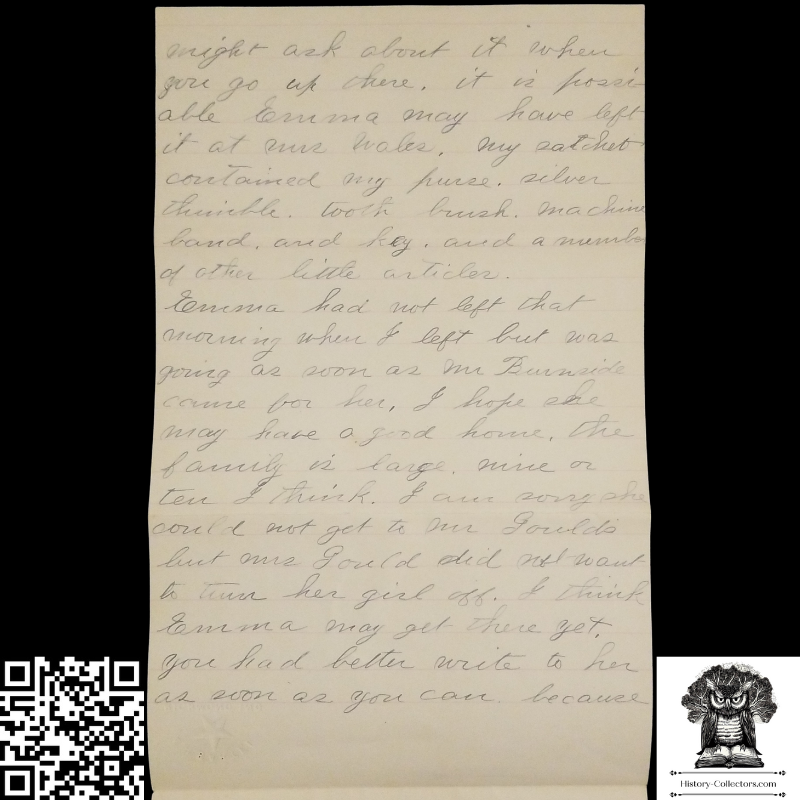 might ask about it when
you go up there. it is possi-
able Emma may have left
it at mrs Wales. my satchet
contained my purse. silver
thimble. tooth brush. machine
band. and key. and a number
of other little articles.
Emma had not left that
morning when I left but was
going as soon as Mr Burnside
came for her, I hope she
may have a good home, the
family is large. nine or
ten I think. I am sorry she
could not get to Mr Goulds
but mrs Gould did not want
to turn her girl off. I think
Emma may get there yet.
you had better write to her
as soon as you can. because
History-Collectors.com